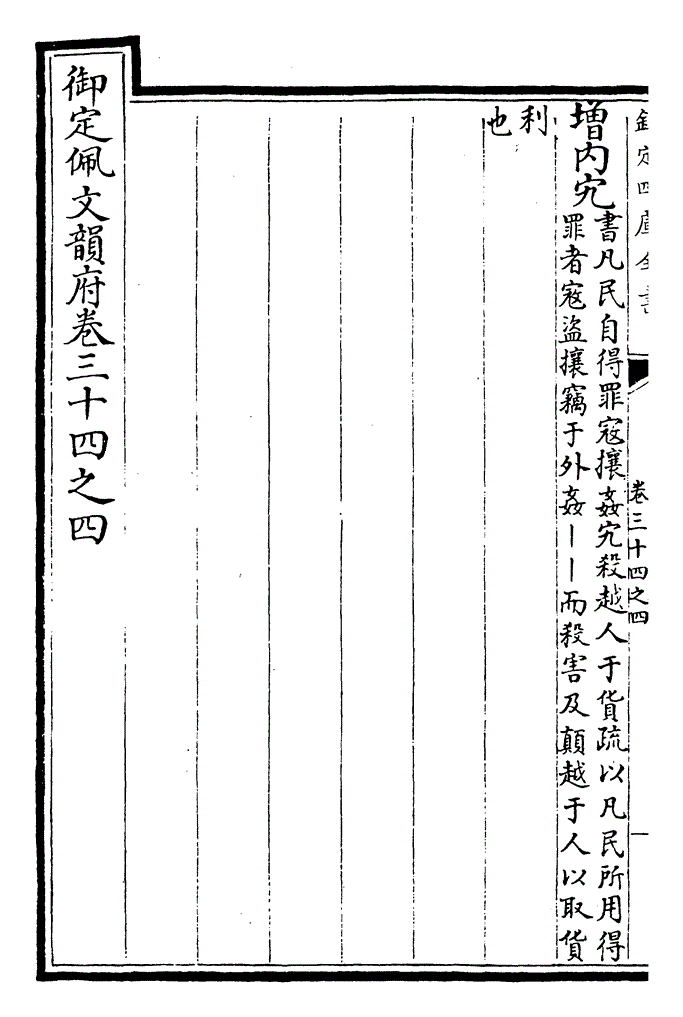 欽定四庫全書
卷三十四之四
增内宄
書凡民自得罪寇攘姦宄殺越人于貨疏以凡民所用得
罪者寇盜攘竊于外姦丨丨而殺害及顛越于人以取貨
利
也
御定佩文韻府卷三十四之四